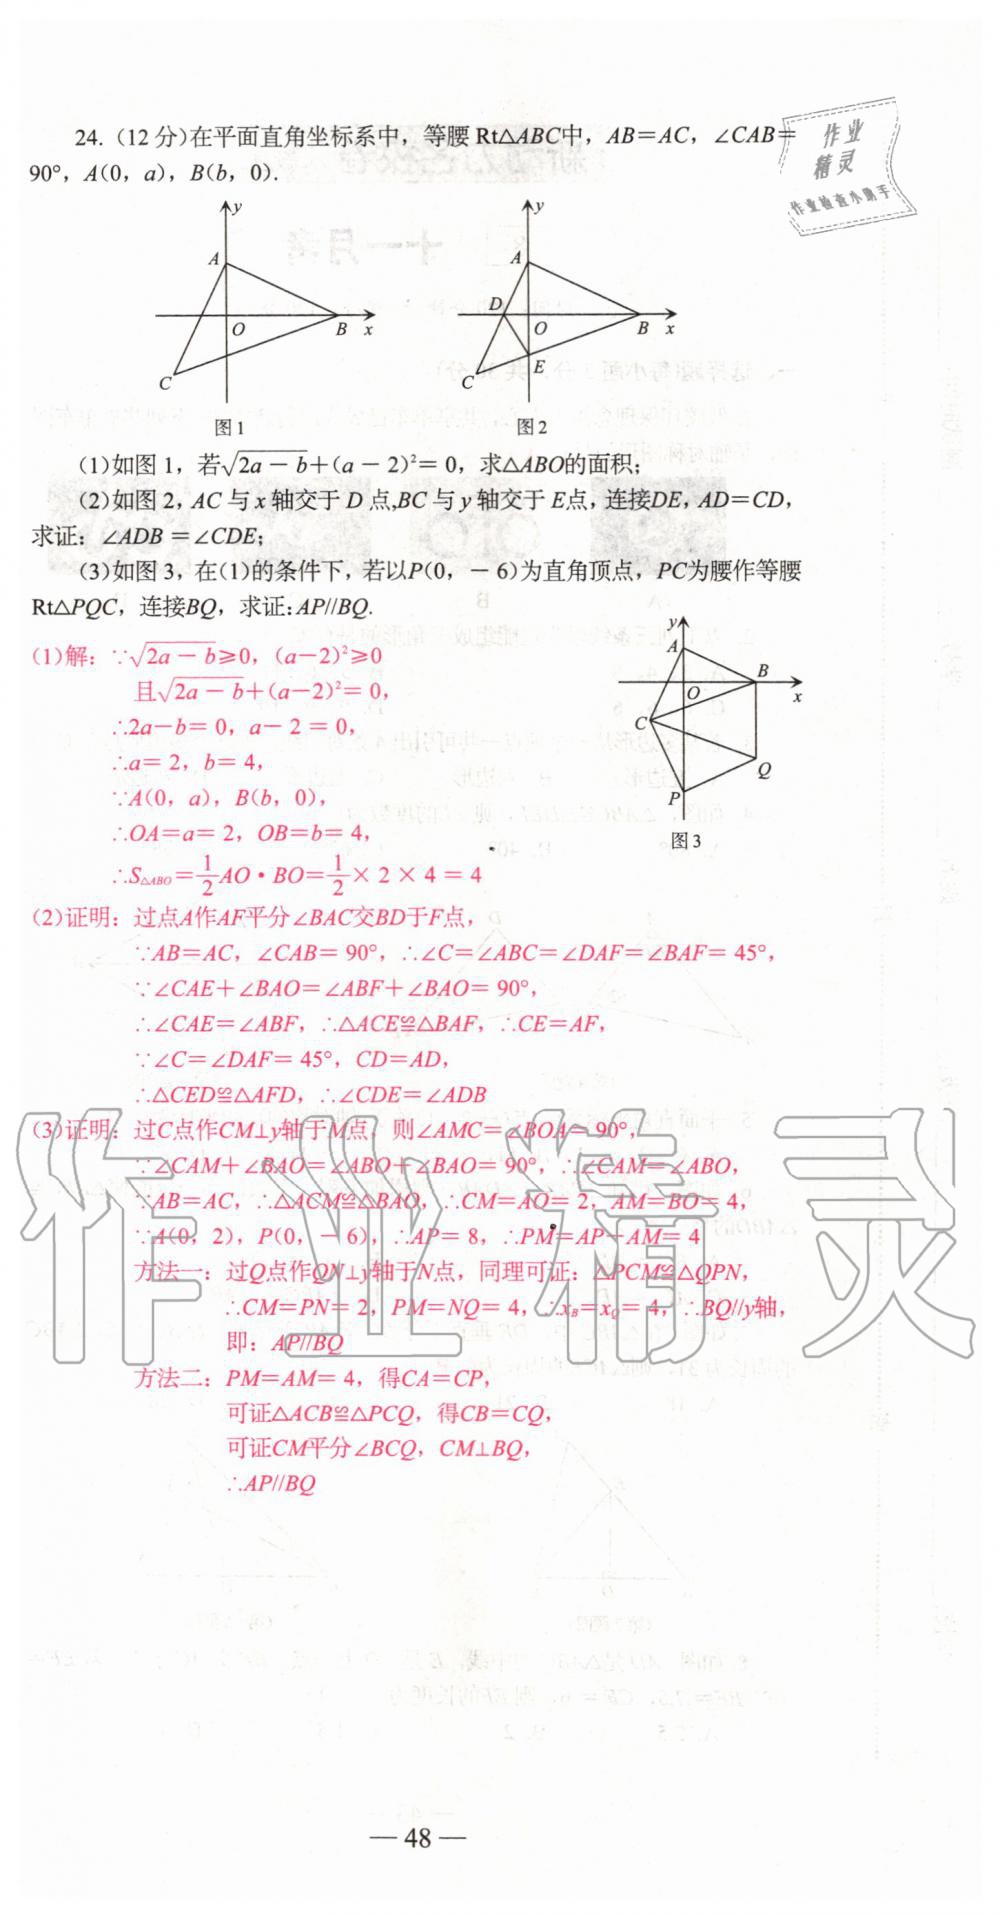 作业
精灵
作业检查小助手
24. (12分)在平面直角坐标系中，等腰Rt△ABC中，AB=AC，∠CAB=
90°，A(0，a)，B(b，0).
y
A
O
B
x
C
图1
y
A
D
O
B
x
C
E
图2
(1)如图1，若√(2a-b)+(a-2)²=0，求△ABO的面积；
(2)如图2，AC与x轴交于D点,BC与y轴交于E点，连接DE，AD=CD，
求证：∠ADB=∠CDE；
(3)如图3，在(1)的条件下，若以P(0，-6)为直角顶点，PC为腰作等腰
Rt△PQC，连接BQ，求证：AP//BQ.
y
A
B
O
x
C
Q
P
图3
(1)解：∵√(2a-b)≥0，(a-2)²≥0
且√(2a-b)+(a-2)²=0，
∴2a-b=0，a-2=0，
∴a=2，b=4，
∵A(0，a)，B(b，0)，
∴OA=a=2，OB=b=4，
∴S△ABO=1/2AO·BO=1/2×2×4=4
(2)证明：过点A作AF平分∠BAC交BD于F点，
∵AB=AC，∠CAB=90°，∴∠C=∠ABC=∠DAF=∠BAF=45°，
∵∠CAE+∠BAO=∠ABF+∠BAO=90°，
∴∠CAE=∠ABF，∴△ACE≌△BAF，∴CE=AF，
∵∠C=∠DAF=45°，CD=AD，
∴△CED≌△AFD，∴∠CDE=∠ADB
(3)证明：过C点作CM⊥y轴于M点，则∠AMC=∠BOA=90°，
∵∠CAM+∠BAO=∠ABO+∠BAO=90°，∴∠CAM=∠ABO，
∵AB=AC，∴△ACM≌△BAO，∴CM=AO=2，AM=BO=4，
∵A(0，2)，P(0，-6)，∴AP=8，∴PM=AP-AM=4
方法一：过Q点作QN⊥y轴于N点，同理可证：△PCM≌△QPN，
∴CM=PN=2，PM=NQ=4，∴x_B=x_Q=4，∴BQ//y轴，
即：AP//BQ
方法二：PM=AM=4，得CA=CP，
可证△ACB≌△PCQ，得CB=CQ，
可证CM平分∠BCQ，CM⊥BQ，
∴AP//BQ
作业精灵
— 48 —